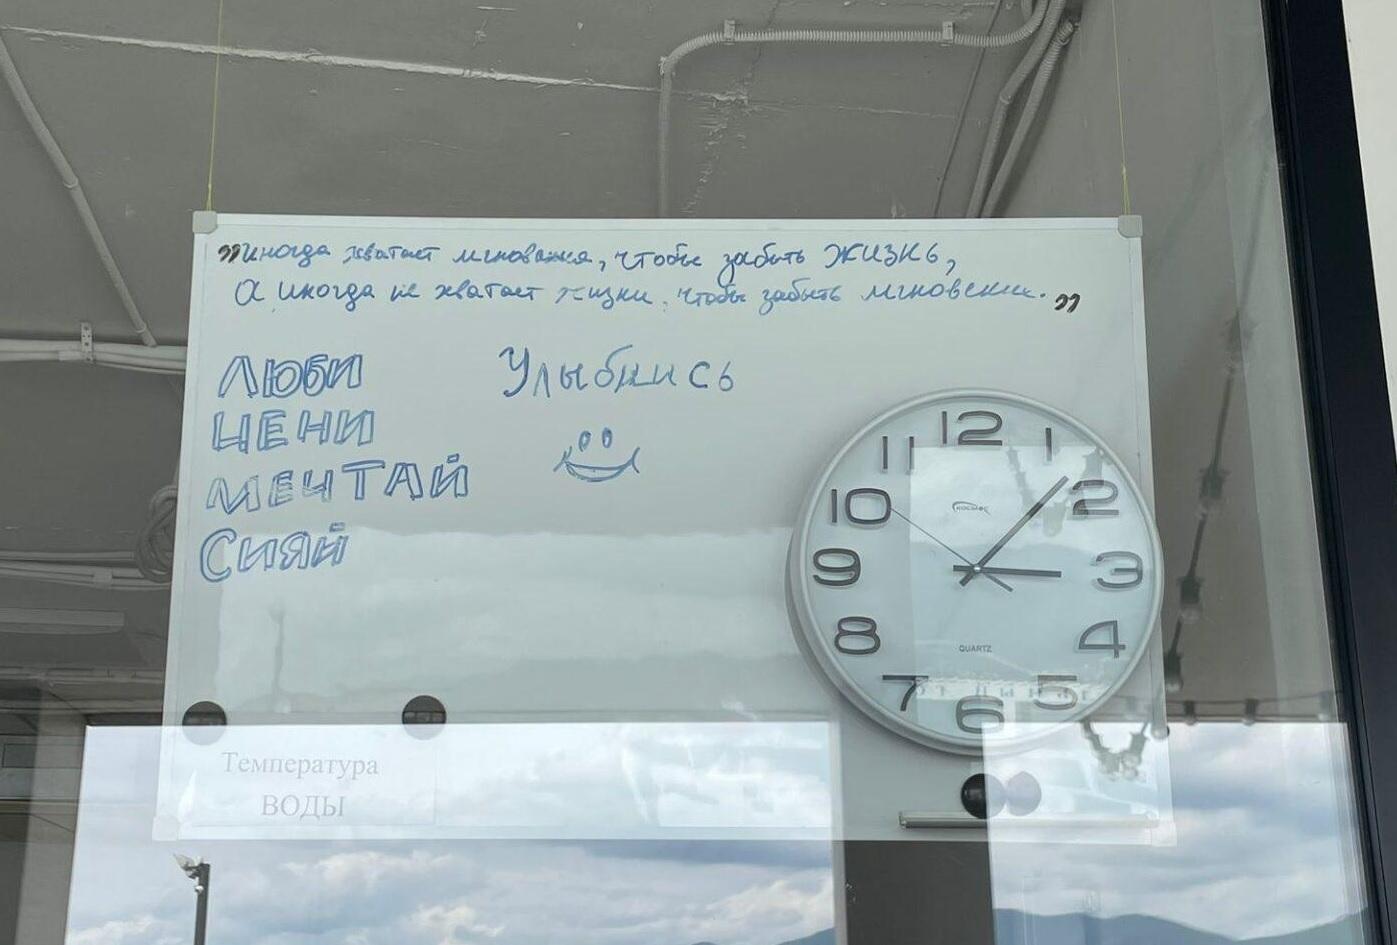 „иногда хватает мгновения, чтобы забыть ЖИЗНЬ,
а иногда не хватает жизни, чтобы забыть мгновение.”
ЛЮБИ
ЦЕНИ
МЕЧТАЙ
СИЯЙ
Улыбнись
12
1
2
3
4
5
6
7
8
9
10
11
КОСМОС
QUARTZ
Температура
ВОДЫ